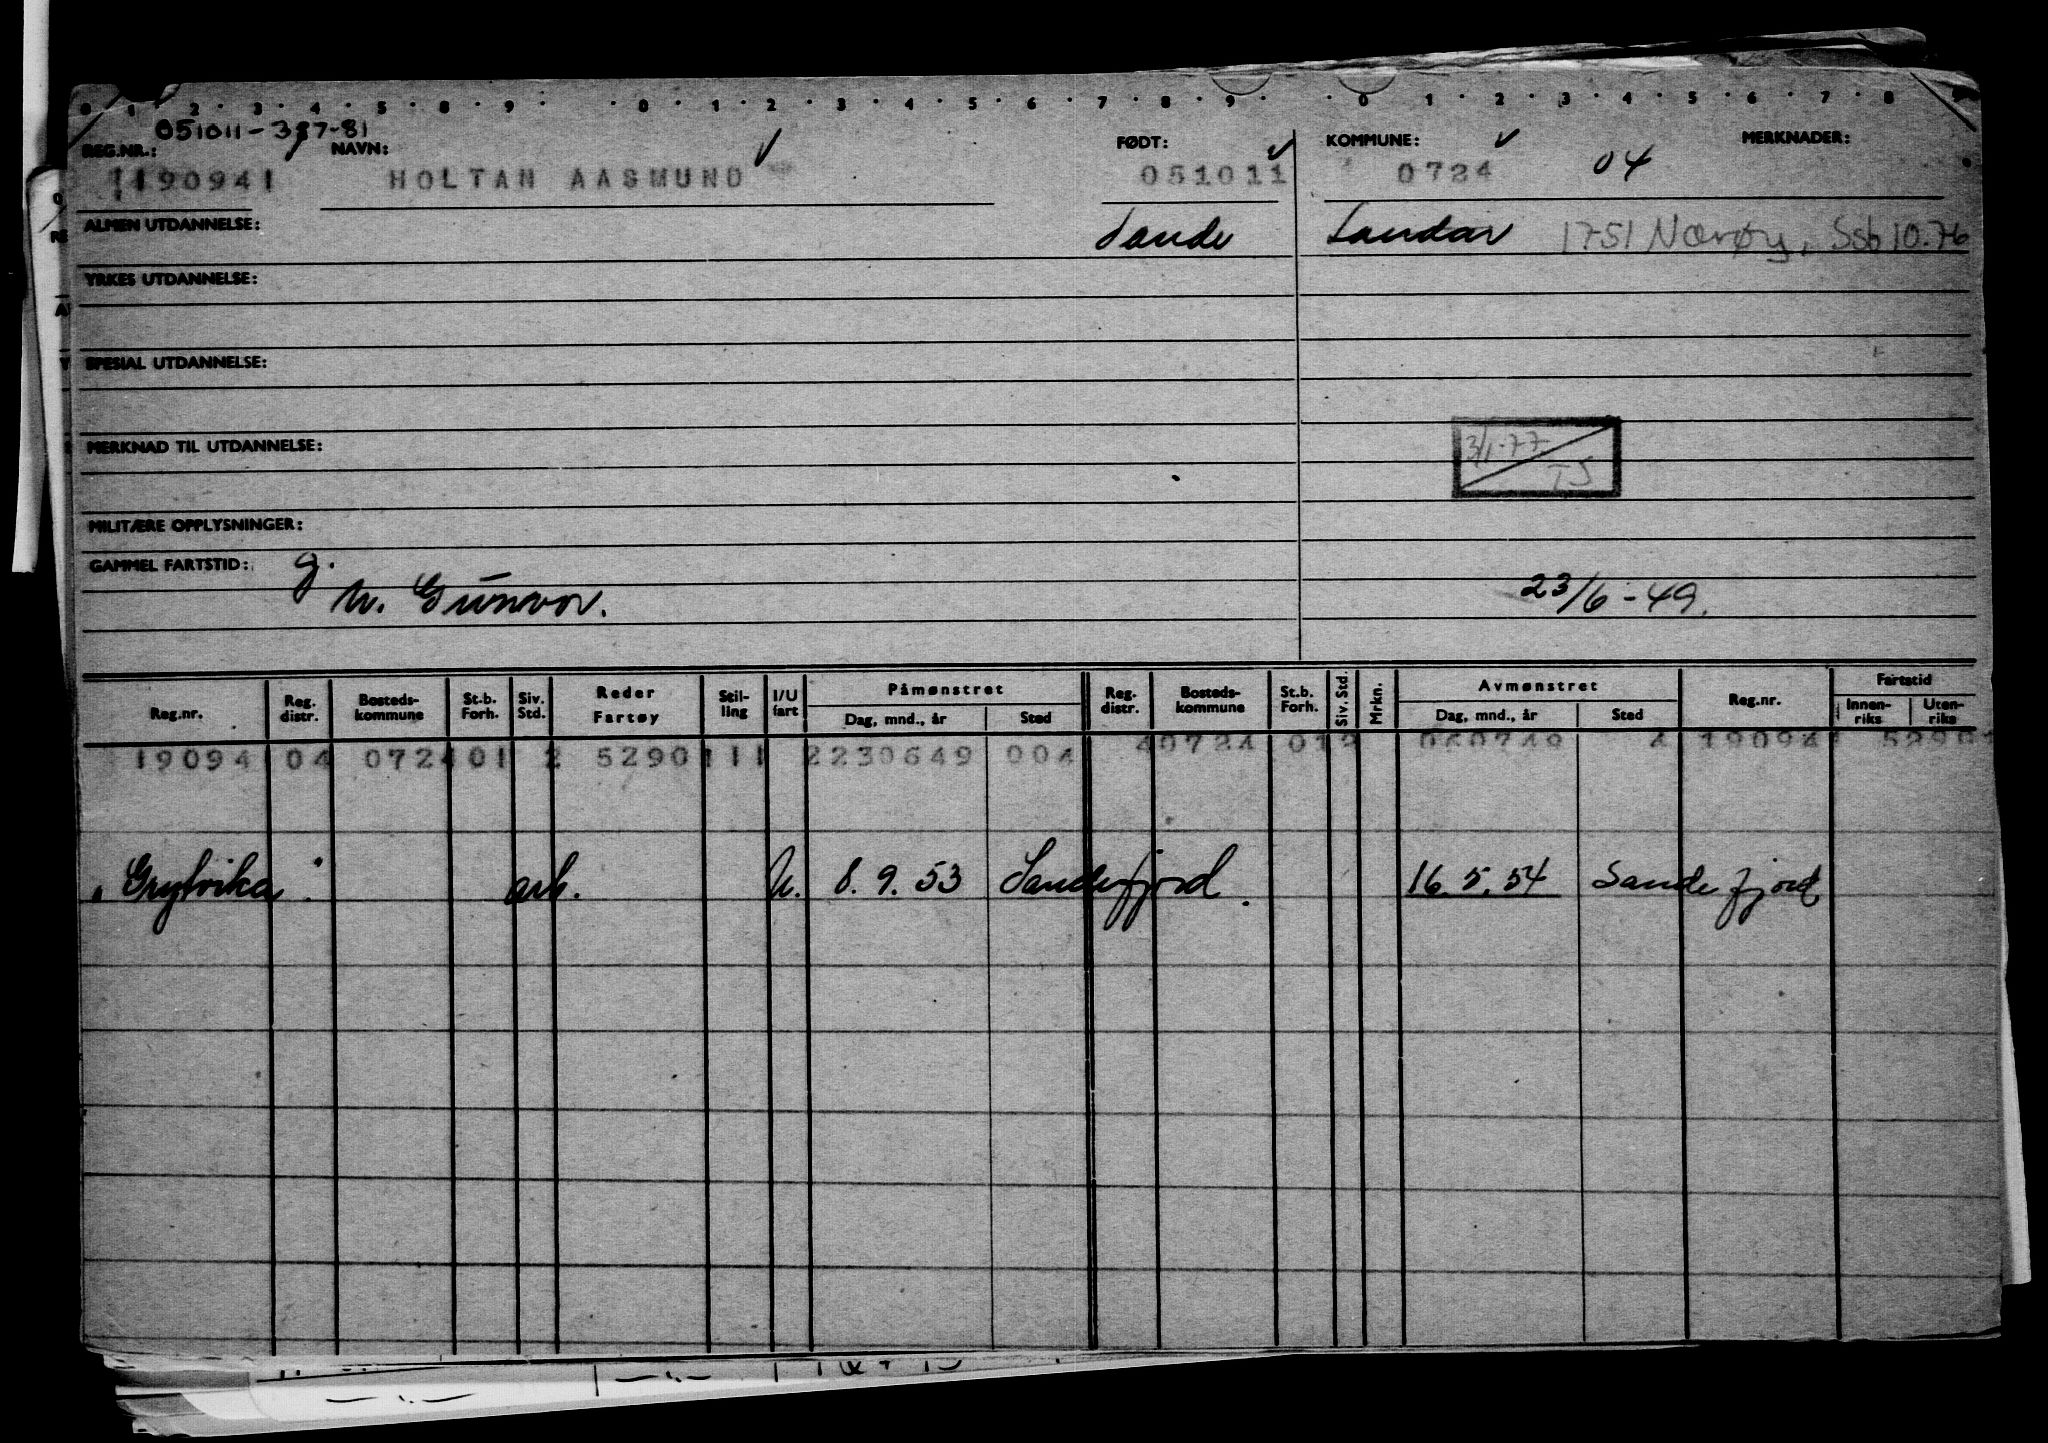 0 1 2 3 4 5 8 9 0 1 2 3 4 5 6 7 8 9 0 1 2 3 4 5 6 7 8
REG.NR.: 051011-387-81 NAVN: FØDT: KOMMUNE: MERKNADER:
190941 HOLTAN AASMUND 051011 0724 04
ALMEN UTDANNELSE: Sande Sandar 1751 Nærøy, Ssb 10.76
YRKES UTDANNELSE:
SPESIAL UTDANNELSE:
MERKNAD TIL UTDANNELSE: 3/1-77 TS
MILITÆRE OPPLYSNINGER:
GAMMEL FARTSTID: g.
h. Gunvor. 23/6-49.
Reg.nr. Reg. distr. Bosteds- kommune St.b. Forh. Siv. Std. Reder Fartøy Stil- ling I/U fart Påmønstret Dag, mnd., år Sted Reg. distr. Bosteds- kommune St.b. Forh. Siv. Std. Mrkn. Avmønstret Dag, mnd., år Sted Reg.nr. Fartstid Innen- riks Uten- riks
19094 04 072401 2 5290111 2230649 004 40724 012 060749 4 19094 5290
"Grytvika" arb. U. 8.9.53 Sandefjord. 16.5.54 Sandefjord